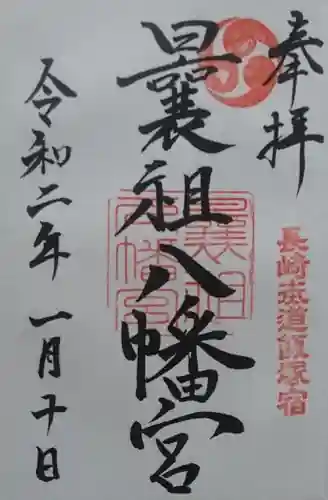 奉拝
長崎街道飯塚宿
曩祖八幡宮
令和二年 一月十日